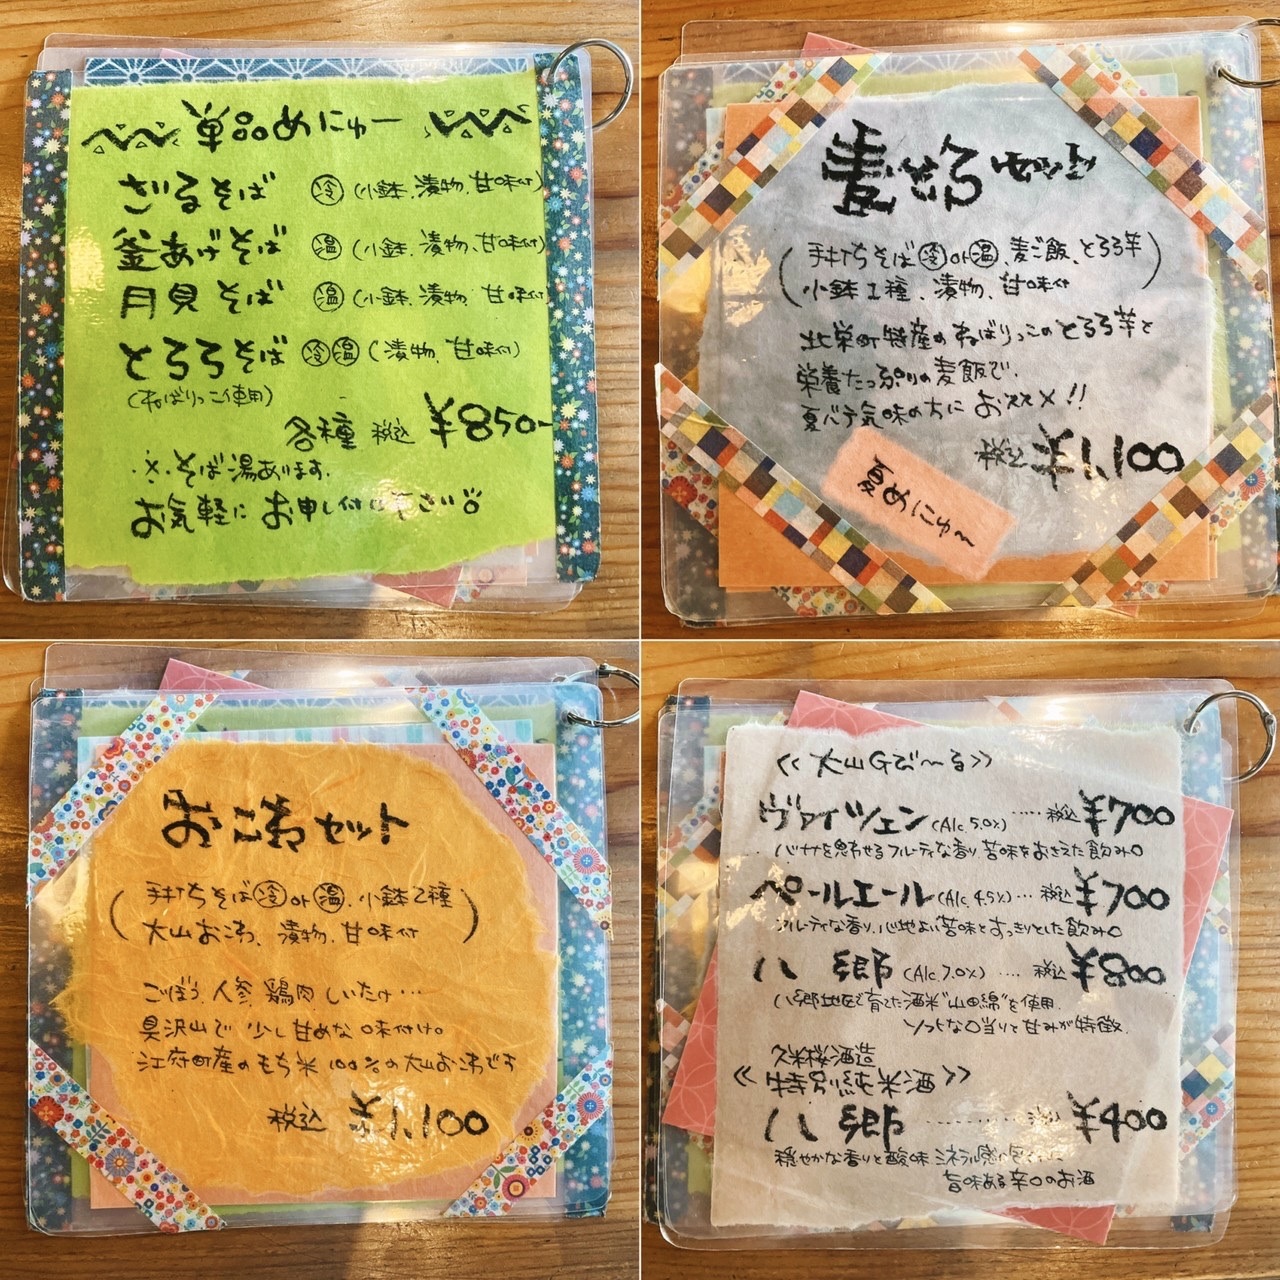 単品めにゅー
ざるそば ㊀冷 (小鉢、漬物、甘味付)
釜あげそば 温 (小鉢、漬物、甘味付)
月見そば 温 (小鉢、漬物、甘味付
とろろそば 冷 温 (漬物、甘味付)
(ねばりっこ使用)
各種 税込 ¥850-
※そば湯あります。
お気軽にお申し付け下さい
麦とろセット
(手打ちそば 冷 or 温、麦ご飯、とろろ芋
小鉢1種、漬物、甘味付)
北栄町特産のねばりっこのとろろ芋と
栄養たっぷりの麦飯で、
夏バテ気味の方におススメ!!
税込 ¥1,100
夏めにゅ〜
おこわセット
(手打ちそば 冷 or 温、小鉢2種
大山おこわ、漬物、甘味付)
ごぼう、人参、鶏肉、しいたけ…
具沢山で少し甘めな味付け。
江府町産のもち米100%の大山おこわです
税込 ¥1,100
《大山Gび〜る》
ヴァイツェン(Alc.5.0%)……税込 ¥700
バナナを思わせるフルーティな香り、苦味をおさえた飲み口
ペールエール(Alc.4.5%)…税込 ¥700
フルーティな香り、心地よい苦味とすっきりとした飲み口
八郷(Alc.7.0%)….税込 ¥800
八郷地区で育てた酒米"山田錦"を使用。
ソフトな口当りと甘みが特徴。
久米桜酒造
《特別純米酒》
八郷 ¥400
穏やかな香りと酸味 ミネラル感
旨味ある辛口のお酒